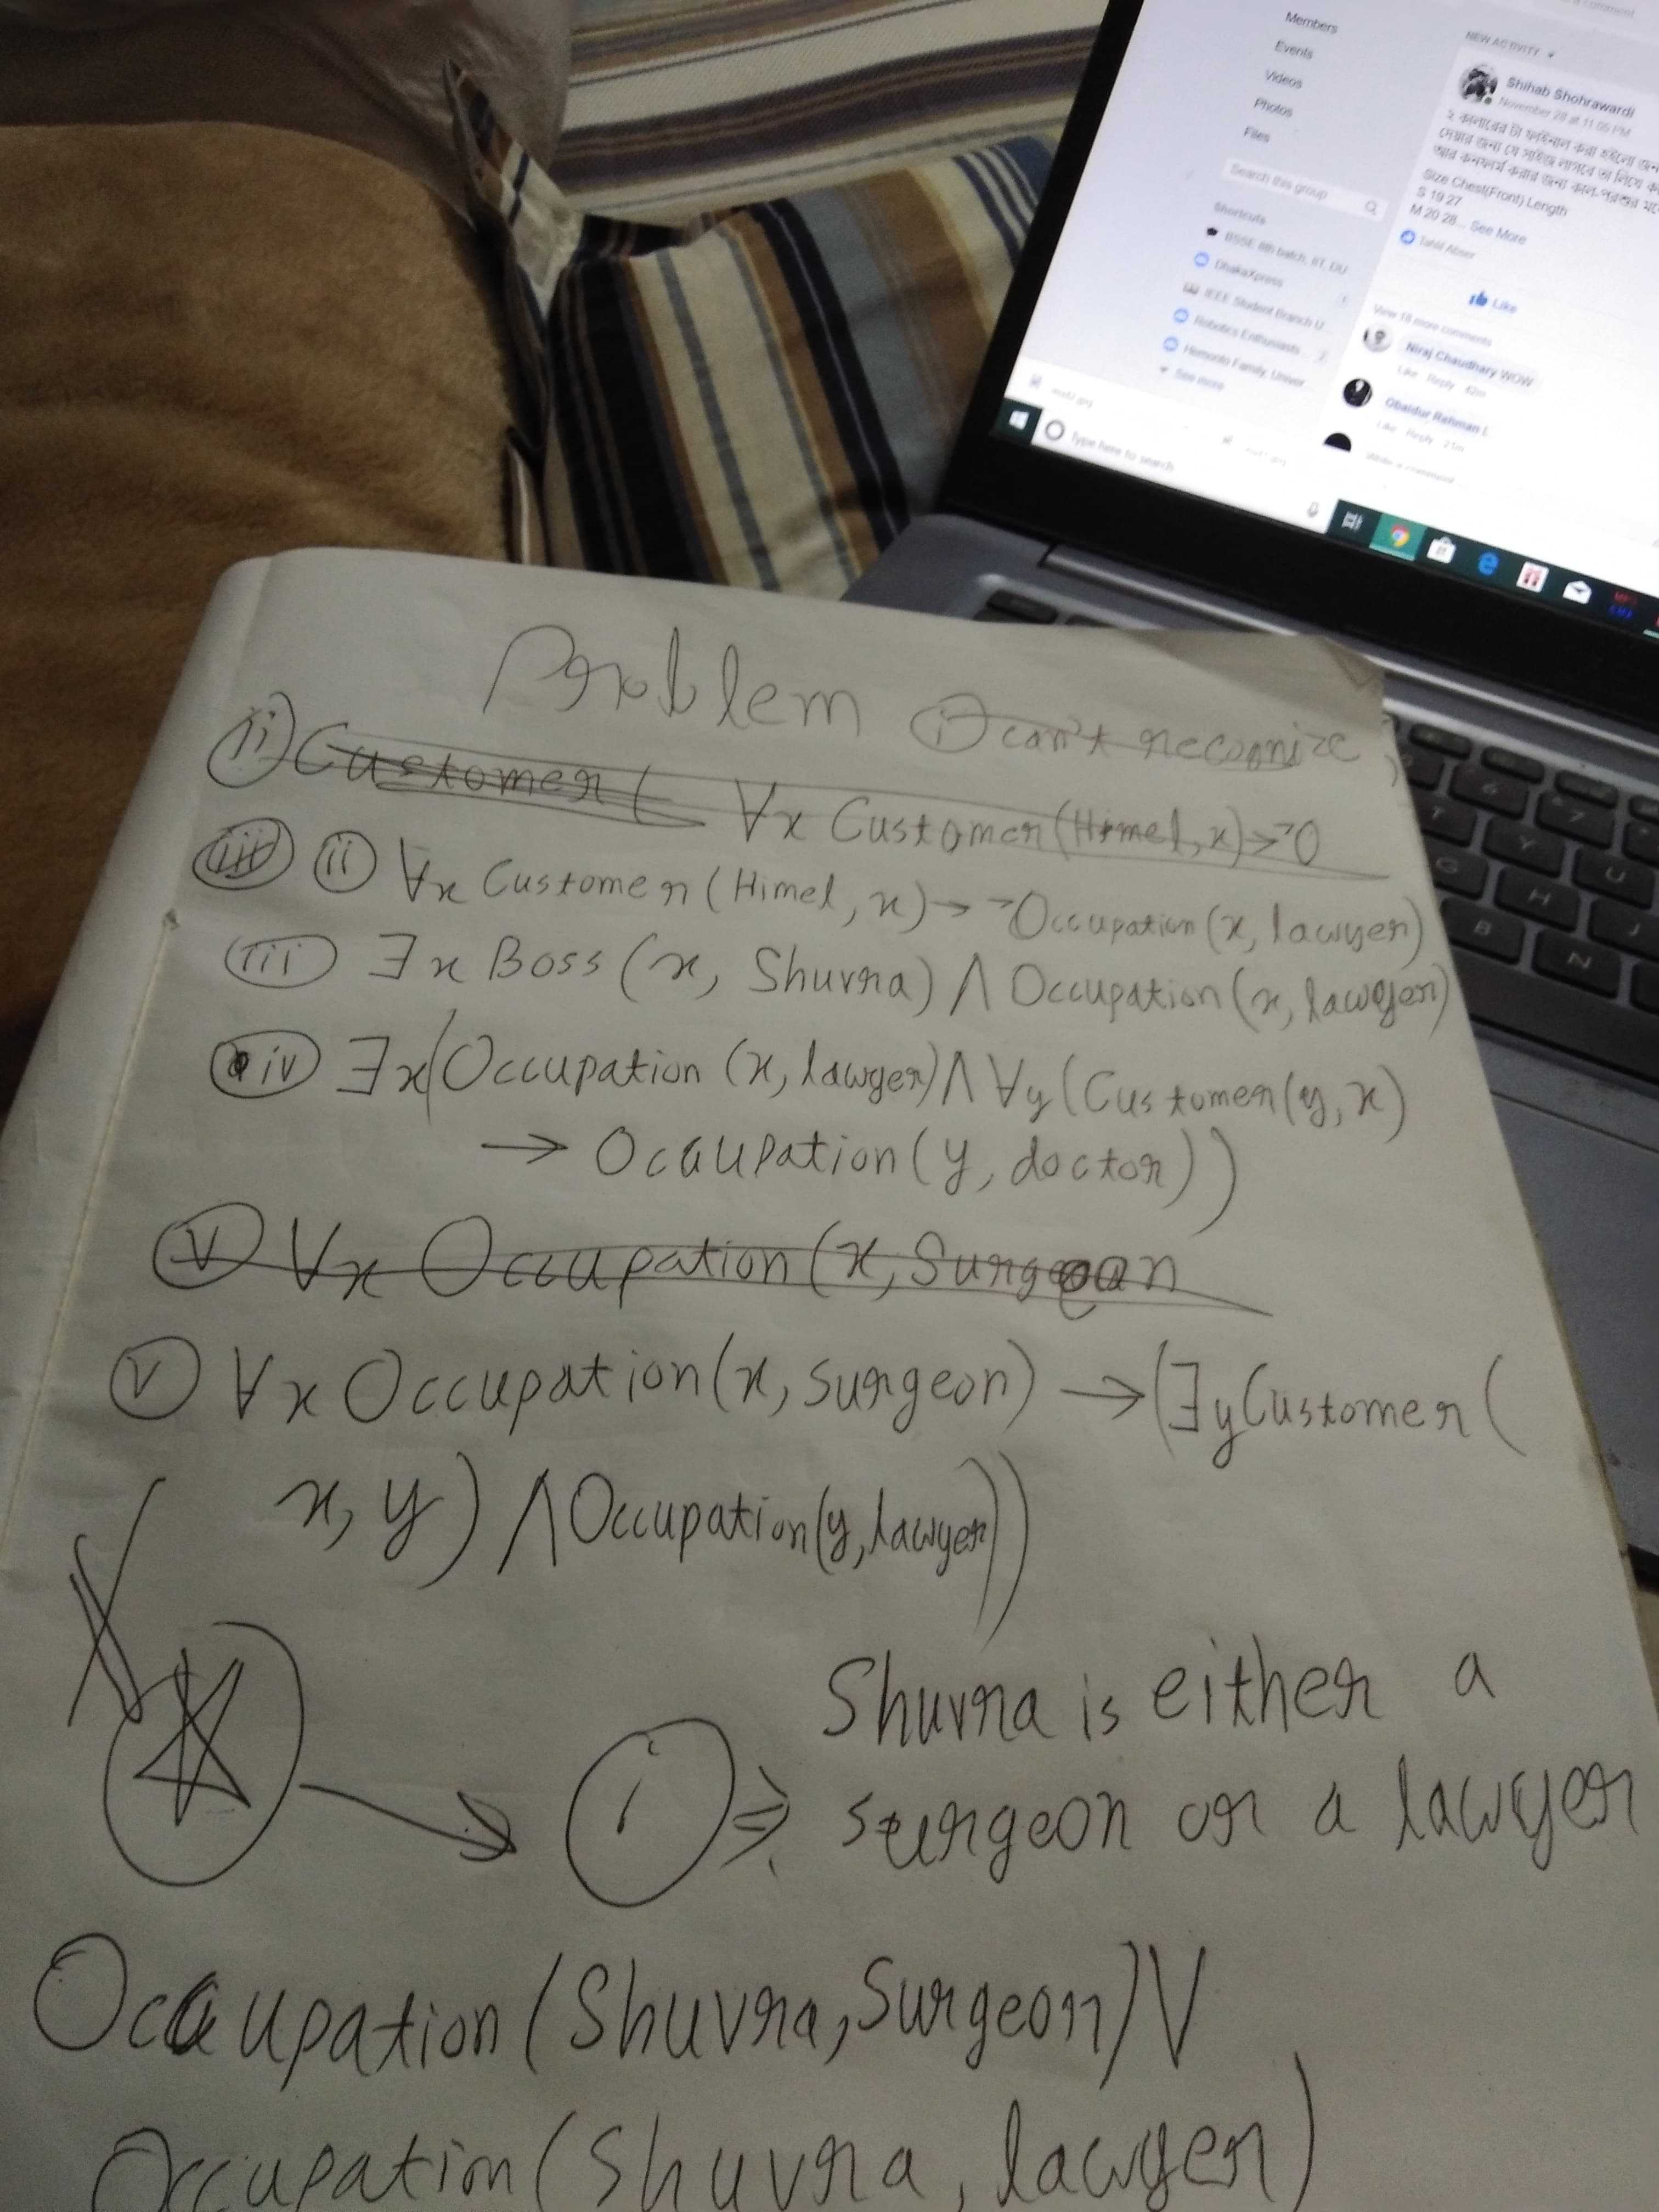 Members
Events
Videos
Photos
Files
Search this group
Shortcuts
BSSE 8th batch, IIT, DU
DhakaXpress
IEEE Student Branch U
Robotics Enthusiasts
Hemonto Family, Univer
See more
Type here to search
NEW ACTIVITY
Shihab Shohrawardi
November 28 at 11:05 PM
Size Chest(Front) Length
S 19 27
M 20 28... See More
Like
View 18 more comments
Niraj Chaudhary WOW
Like Reply
Obaidur Rahman
Like Reply 21m
Write a comment
Problem i can't recognize
ii Customer ( ∀x Customer(Himel, x)→¬O
iii ii ∀x Customer (Himel, x) → ¬Occupation(x, lawyer)
iii ∃x Boss (x, Shuvra) ∧ Occupation(x, lawyer)
iv ∃x(Occupation (x, lawyer) ∧ ∀y (Customer(y, x)
→ Occupation(y, doctor))
v ∀x Occupation (x, Surgeon
v ∀x Occupation(x, surgeon) → (∃y Customer(
x, y) ∧ Occupation(y, lawyer))
Shuvra is either a
i ⇒ surgeon or a lawyer
Occupation (Shuvra, Surgeon) ∨
Occupation (Shuvra, lawyer)